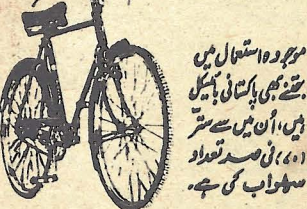 موجودہ استعمال میں
جتنے بھی پاکستانی بائیسکل
ہیں، اُن میں سے ستر
(۷۰) فی صد تعداد
سہراب کی ہے۔